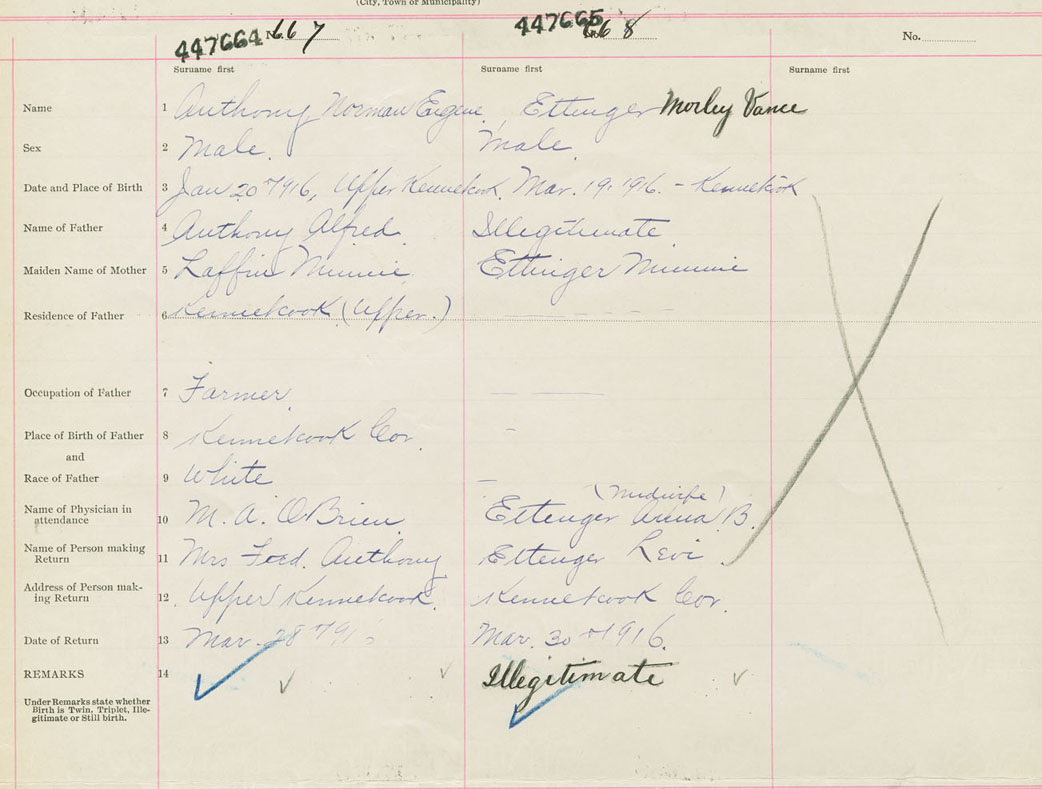 (City, Town or Municipality)
447664 No. 667 447665 No. 668 No.
Surname first Surname first Surname first
Name 1 Anthony Norman Eugene Ettenger Morley Vance
Sex 2 Male. Male.
Date and Place of Birth 3 Jan 20th 1916, Upper Kennetcook. Mar. 19. 1916. - Kennetcook
Name of Father 4 Anthony Alfred. Illegitimate.
Maiden Name of Mother 5 Laffin Minnie. Ettinger Minnie
Residence of Father 6 Kennetcook (Upper.)
Occupation of Father 7 Farmer.
Place of Birth of Father 8 Kennetcook Cor.
and
Race of Father 9 White
(Midwife)
Name of Physician in attendance 10 M. A. O'Brien Ettenger B.
Name of Person making Return 11 Mrs Fred. Anthony Ettenger Levi.
Address of Person making Return 12 Upper Kennetcook. Kennetcook Cor.
Date of Return 13 Mar. 28th 191 Mar. 30th 1916.
REMARKS 14 Illegitimate
Under Remarks state whether
Birth is Twin, Triplet, Ille-
gitimate or Still birth.